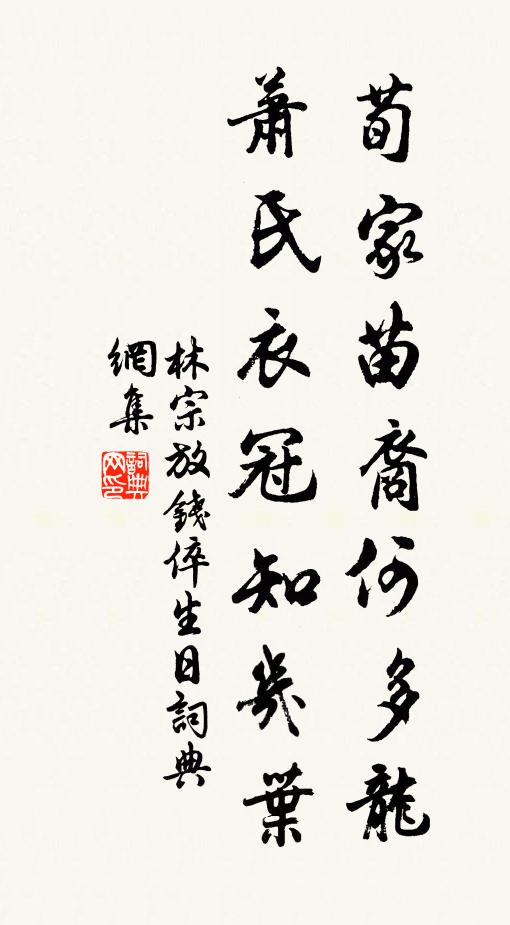 荀家苗裔何多龍
蕭氏衣冠知幾葉
林宗放錢倅生日詞典
網集
詞典网印